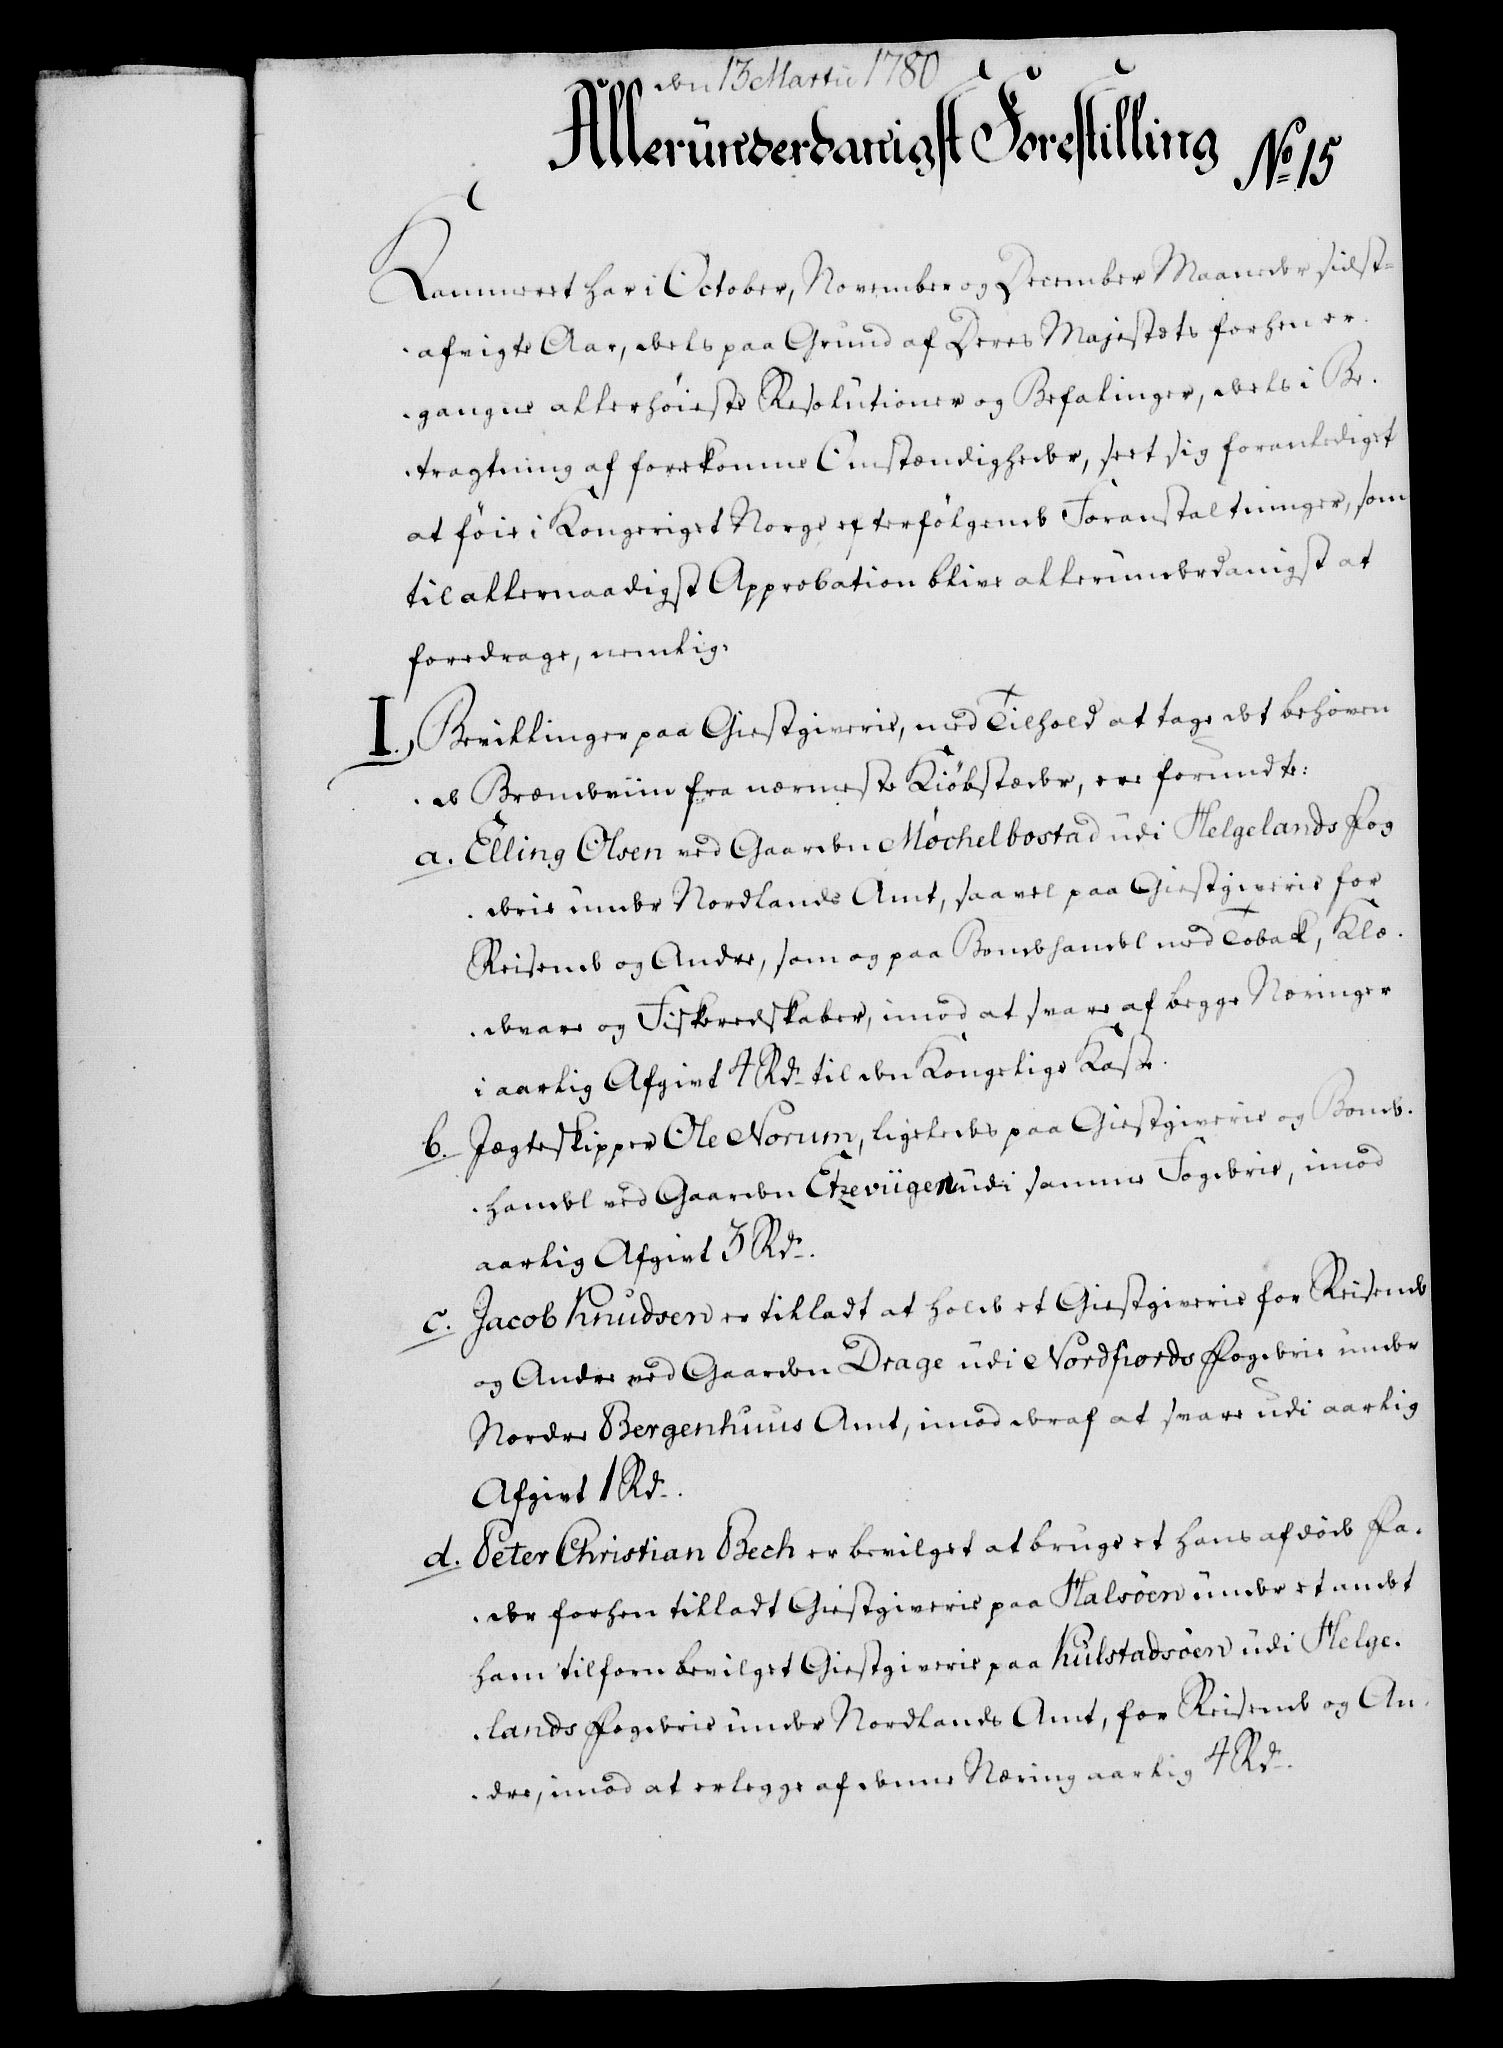 den 13 Martii 1780
Alleründerdanigst Forestilling No 15
Kammeret har i October, November og December Maaneder sidst-
afvigte Aar, dels paa Grund af Deres Majestæts forhen er-
gangne allerhöieste Resolutioner og Befalinger, dels i Be-
tragtning af forekomne Omstændigheder, seet sig foranlediget
at föie i Kongeriget Norge efterfölgende Foranstaltninger, som
til allernaadigst Approbation blive alleründerdanigst at
foredrage, nemlig:
I. Bevillinger paa Giestgiverie, med Tilhold at tage det behöven-
de Brændeviin fra nærmeste Kiöbstæder, ere forundte:
a. Elling Olsen ved Gaarden Møchelbostad üdi Helgelands Fog-
derie ünder Nordlands Amt, saavel paa Giestgiverie for
Reisende og Andre, som og paa Bondehandel med Tobak, Klæ-
devare og Fiskeredskaber, imod at svare af begge Næringer
i aarlig Afgivt 4 Rdr. til den Kongelige Kasse.
b. Jægteskipper Ole Norum, ligeledes paa Giestgiverie og Bonde-
handel ved Gaarden Etzeviigen üdi samme Fogderie, imod
aarlig Afgivt 3 Rdr.
c. Jacob Knudsen er tilladt at holde et Giestgiverie for Reisende
og Andre ved Gaarden Drage üdi Nordfiords Fogderie ünder
Nordre Bergenhuus Amt, imod deraf at svare udi aarlig
Afgivt 1 Rdr.
d. Peter Christian Bech er bevilget at bruge et hans afdöde Fa-
der forhen tilladt Giestgiverie paa Halsöen ünder et andet
ham tilforn bevilget Giestgiverie paa Kulstadsöen üdi Helge-
lands Fogderie ünder Nordlands Amt, for Reisende og An-
dre, imod at erlegge af denne Næring aarlig 4 Rdr.